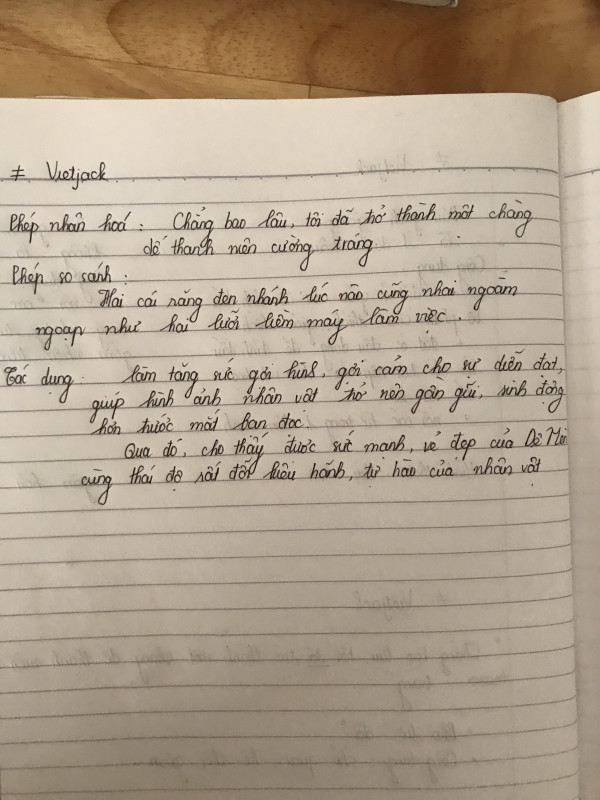 ≠ Vietjack
Phép nhân hoá : Chẳng bao lâu, tôi đã trở thành một chàng
dế thanh niên cường tráng.
Phép so sánh :
Hai cái răng đen nhánh lúc nào cũng nhai ngoàm
ngoạp như hai lưỡi liềm máy làm việc.
Tác dụng : làm tăng sức gợi hình, gợi cảm cho sự diễn đạt,
giúp hình ảnh nhân vật trở nên gần gũi, sinh động
hơn trước mắt bạn đọc.
Qua đó, cho thấy được sức mạnh, vẻ đẹp của Dế Mèn
cùng thái độ rất đỗi kiêu hãnh, tự hào của nhân vật